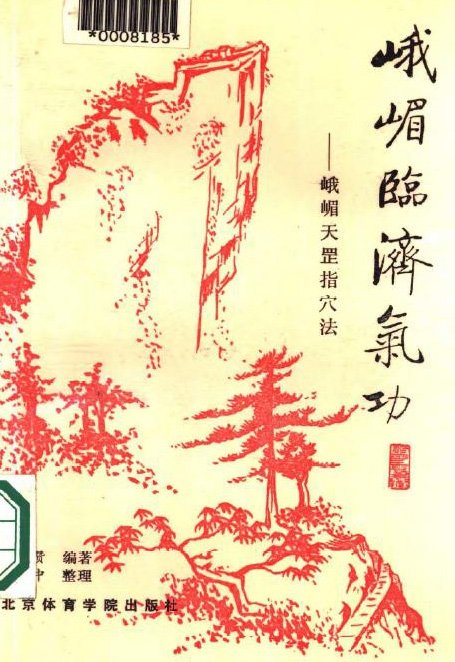 *0008185*
峨嵋臨濟氣功
——峨嵋天罡指穴法
贯 编著
中 整理
北京体育学院出版社